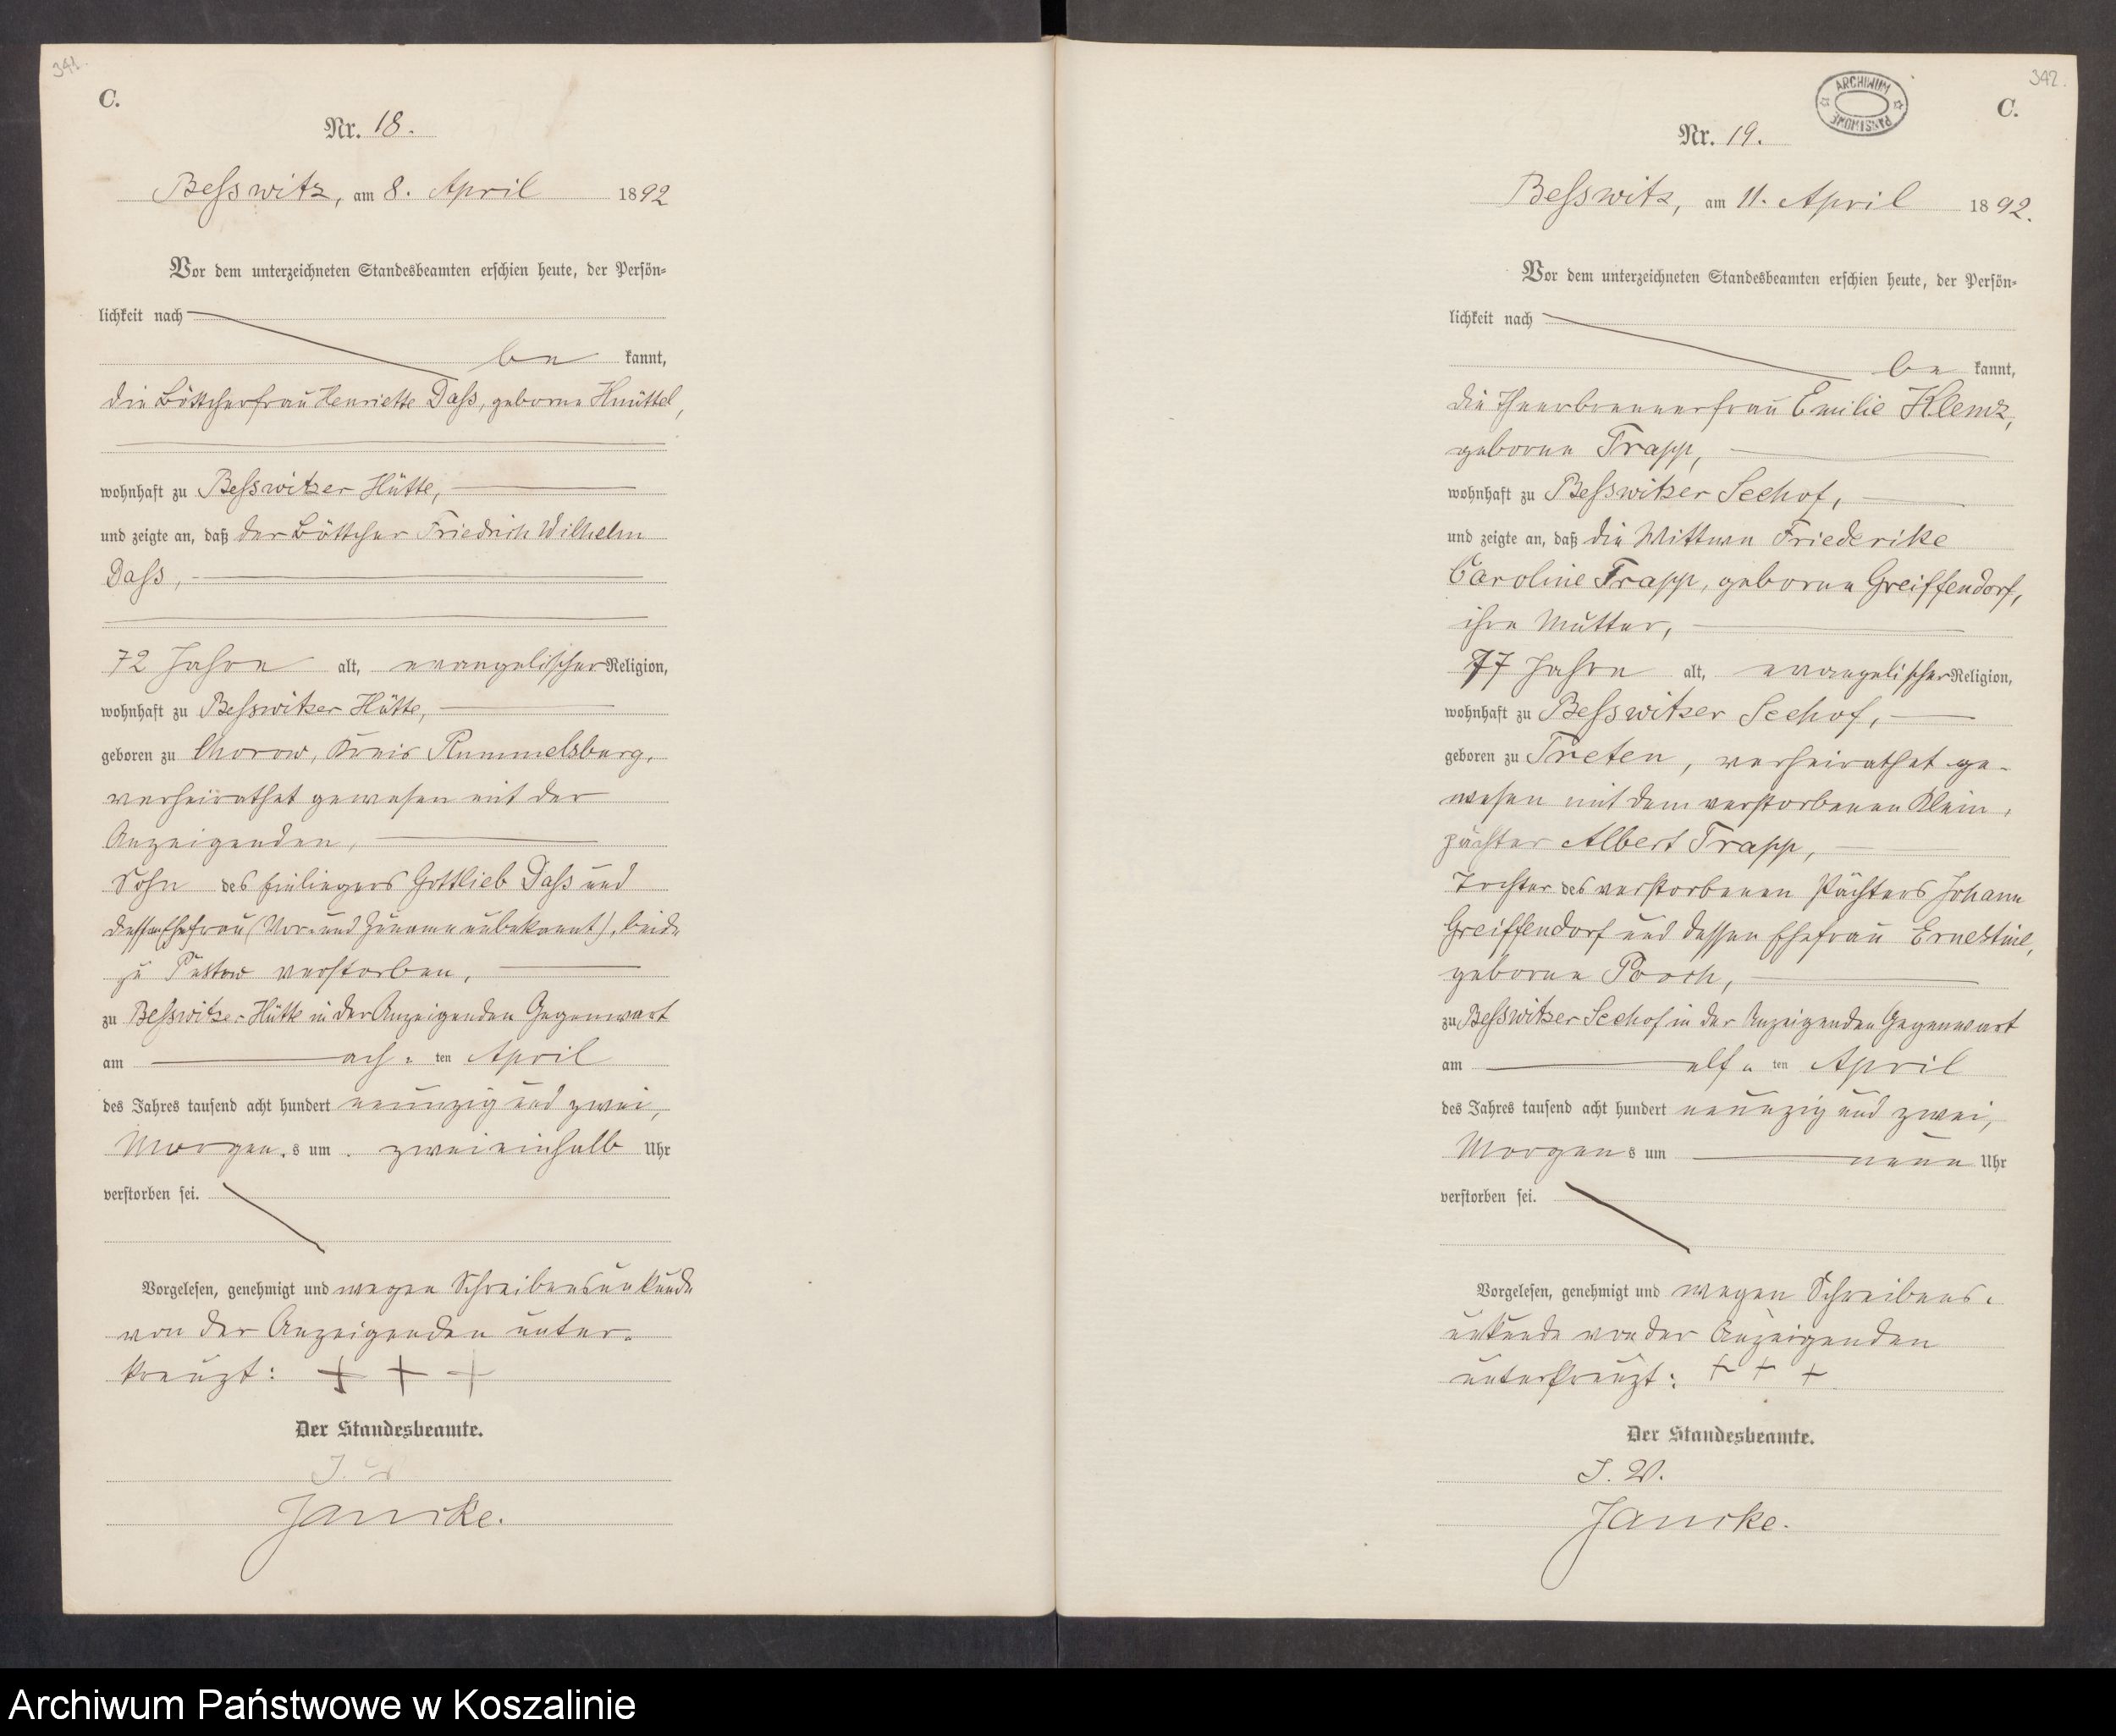 341.
C.
Nr. 18.
Besswitz, am 8. April 1892
Vor dem unterzeichneten Standesbeamten erschien heute, der Persön-
lichkeit nach
be kannt,
die Böttcherfrau Henriette Dass, geborne Knüttel,
wohnhaft zu Besswitzer Hütte,
und zeigte an, daß der Böttcher Friedrich Wilhelm
Dass,
72 Jahre alt, evangelischer Religion,
wohnhaft zu Besswitzer Hütte,
geboren zu Chorow, Kreis Rummelsburg,
verheirathet gewesen mit der
Anzeigenden,
Sohn des Einliegers Gottlieb Dass und
dessen Ehefrau (Vor- und Zuname unbekannt), beide
zu verstorben,
zu Besswitzer Hütte in der Anzeigenden Gegenwart
am ach- ten April
des Jahres tausend acht hundert neunzig und zwei,
Morgen s um zweieinhalb Uhr
verstorben sei.
Vorgelesen, genehmigt und wegen Schreibensunkunde
von der Anzeigenden unter-
kreuzt: + + +
Der Standesbeamte.
J. V.
Jancke.
342.
ARCHIWUM PAŃSTWOWE
C.
Nr. 19.
Besswitz, am 11. April 1892.
Vor dem unterzeichneten Standesbeamten erschien heute, der Persön-
lichkeit nach
be kannt,
die Theerbrennerfrau Emilie Klemz,
geborne Trapp,
wohnhaft zu Besswitzer Seehof,
und zeigte an, daß die Wittwe Friederike
Caroline Trapp, geborne Greiffendorf,
ihre Mutter,
77 Jahre alt, evangelischer Religion,
wohnhaft zu Besswitzer Seehof,
geboren zu Treten, verheirathet ge-
wesen mit dem verstorbenen Klein-
pächter Albert Trapp,
Tochter des verstorbenen Pächters Johann
Greiffendorf und dessen Ehefrau Ernestine,
geborne Pooch,
zu Besswitzer Seehof in der Anzeigenden Gegenwart
am elf- ten April
des Jahres tausend acht hundert neunzig und zwei,
Morgen s um neun Uhr
verstorben sei.
Vorgelesen, genehmigt und wegen Schreibens-
unkunde von der Anzeigenden
unterkreuzt: + + +
Der Standesbeamte.
J. V.
Jancke.
Archiwum Państwowe w Koszalinie